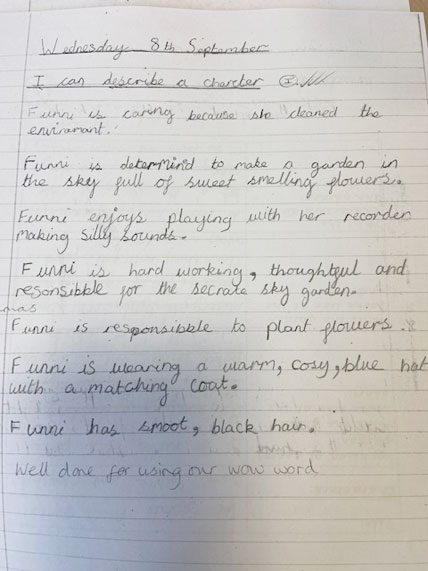 Wednesday 8th September
I can describe a charcter
Funni is caring because she cleaned the
enviramant.
Funni is determind to make a garden in
the sky full of sweet smelling flowers.
Funni enjoys playing with her recorder
making silly sounds.
Funni is hard working, thoughtful and
resonsibble for the secrate sky garden.
mas
Funni is responsibble to plant flowers.
Funni is wearing a warm, cosy, blue hat
with a matching coat.
Funni has smoot, black hair.
Well done for using our wow word